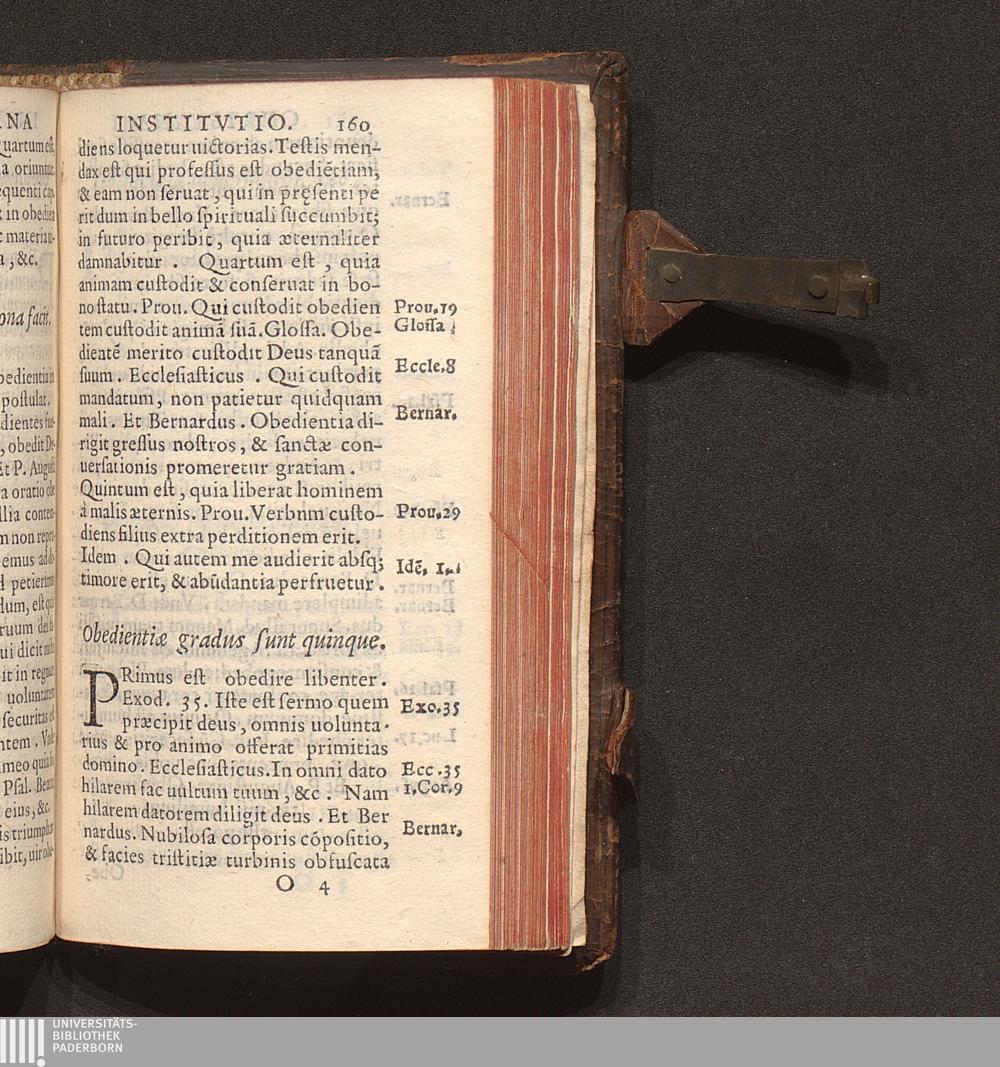 NA
uartum est
a oriuntur
equenti cap.
in obedien
materiam
a, &c.
ona facit.
bedientia in
postulat.
dientes
, obedit De-
Et P. August
a oratio obe
llia conten-
m non repro
emus ad
d petierimus
dum, est qui
ruum
ui dicit
it in regnum
uoluntatem
securitas et
ntem. Vnde
meo quia
Psal. Beatus
eius, &c.
is triumphat
ibit, uir obe-
INSTITVTIO. 160
diens loquetur uictorias. Testis men-
dax est qui professus est obediẽtiam,
& eam non seruat, qui in pręsenti pe
rit dum in bello spirituali succumbit;
in futuro peribit, quia æternaliter
damnabitur. Quartum est, quia
animam custodit & conseruat in bo-
no statu. Prou. Qui custodit obedien Prou.19
tem custodit animã suã. Glossa. Obe- Glossa
dientẽ merito custodit Deus tanquã
suum. Ecclesiasticus. Qui custodit Eccle.8
mandatum, non patietur quidquam
mali. Et Bernardus. Obedientia di- Bernar.
rigit gressus nostros, & sanctæ con-
uersationis promeretur gratiam.
Quintum est, quia liberat hominem
à malis æternis. Prou. Verbnm custo- Prou.29
diens filius extra perditionem erit.
Idem. Qui autem me audierit absq; Idẽ. 1.
timore erit, & abũdantia perfruetur.
Obedientiæ gradus sunt quinque.
PRimus est obedire libenter.
Exod. 35. Iste est sermo quem Exo.35
præcipit deus, omnis uolunta-
rius & pro animo offerat primitias
domino. Ecclesiasticus. In omni dato Ecc.35
hilarem fac uultum tuum, &c. Nam 1.Cor.9
hilarem datorem diligit deus. Et Ber
nardus. Nubilosa corporis cõpositio, Bernar.
& facies tristitiæ turbinis obfuscata
O 4
UNIVERSITÄTS-
BIBLIOTHEK
PADERBORN